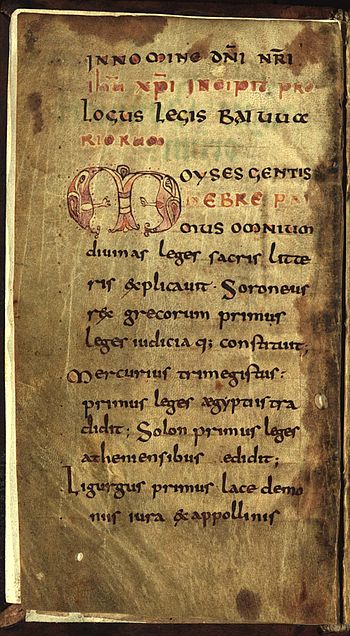 INNOMINE DNI NRI
IHU XPI INCIPIT PRO
LOGUS LEGIS BAIUUA
RIORUM
MOYSES GENTIS
HEBRE PRI
MUS OMNIUM
divinas leges sacris litte
ris explicavit. Foroneus
rex grecorum primus
leges iudicia q; constituit;
Mercurius trimegistus:
primus leges ægyptiis tra
didit; Solon primus leges
atheniensibus edidit;
Ligurgus primus lacedemo
niis iura ex appollinis